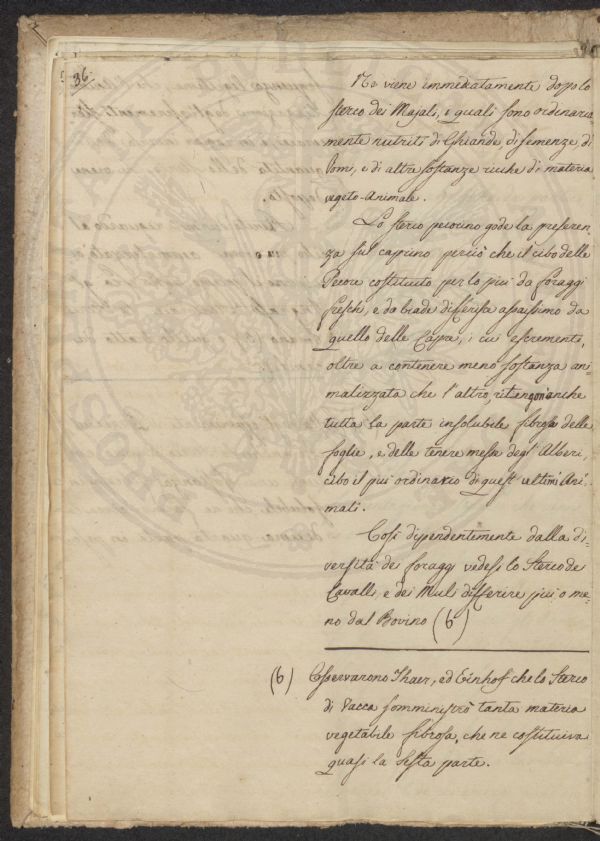 36.
Ne viene immediatamente dopo lo
sterco dei Majali, i quali sono ordinaria
mente nutriti di Ghiande, di semenze, di
Pomi, e di altre sostanze ricche di materia
vegeto-Animale.
Lo sterco pecorino gode la preferen-
za sul caprino perciò che il cibo delle
Pecore costituito per lo più da foraggi
freschi, e da biade differisce assaissimo da
quello delle Capre, i cui escrementi,
oltre a contenere meno sostanza ani-
malizzata che l'altro, ritengon anche
tutta la parte insolubile fibrosa delle
foglie, e delle tenere messe degl'Alberi,
cibo il più ordinario di quest'ultimi Ani-
mali.
Così dipendentemente dalla di-
versità dei foraggi vedesi lo Sterco de
Cavalli, e dei Muli differire più o me-
no dal Bovino (b)
(b) Osservarono Thaer, ed Einhof che lo Sterco
di Vacca somministrò tanta materia
vegetabile fibrosa, che ne costituiva
quasi la Sesta parte.